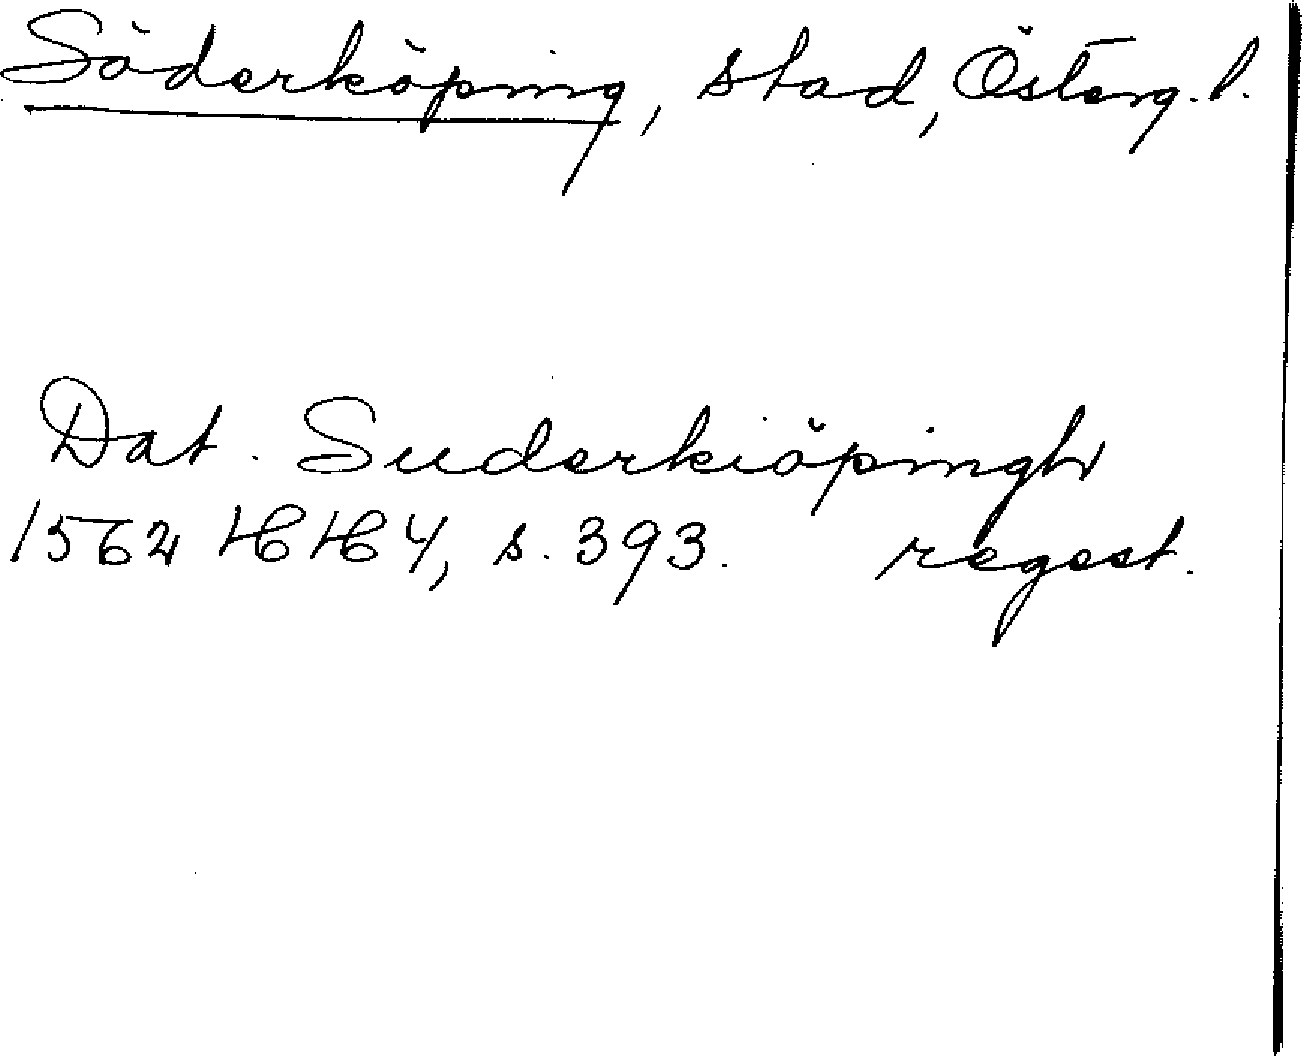 Söderköping, stad, Österg. l.
Dat. Suderkiöpingh
1562 HH 4, s. 393. regest.